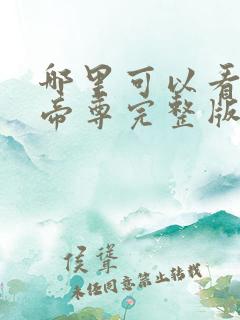 哪里可以看
帝尊完整版
侯聳
未经同意禁止转载